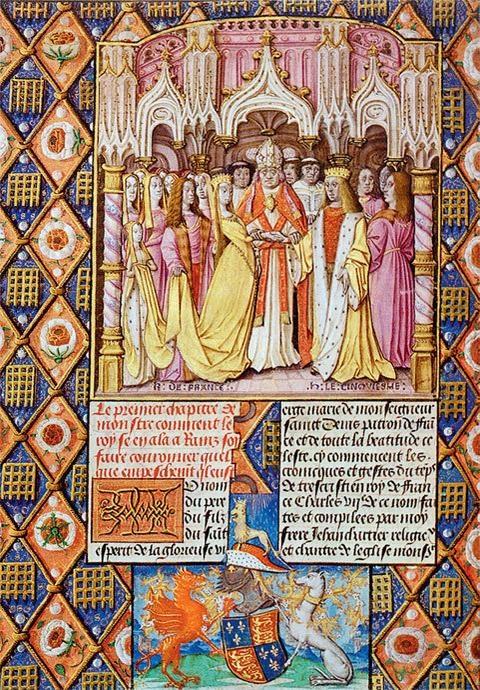 K: DE: FRANCE:
H: LE: CINQVIESME:
Le premier chapitre de
monstre comment le
roy se en ala a Rainz soy
faire couronner quel
que
nom
du pere
du filz
du saīt
esperit de la glorieuse vi
erge marie de monseigneur
sainct Denis patron de frā
ce et de toute la beatitude ce
leste cy commencent les
cronicques et gestes du tēps
de trescrestien roy de fran
ce Charles vij de ce nom fai
tes et compilees par moy
frere Jehan chartier religieꝰ
et chantre de leglise monsʳ